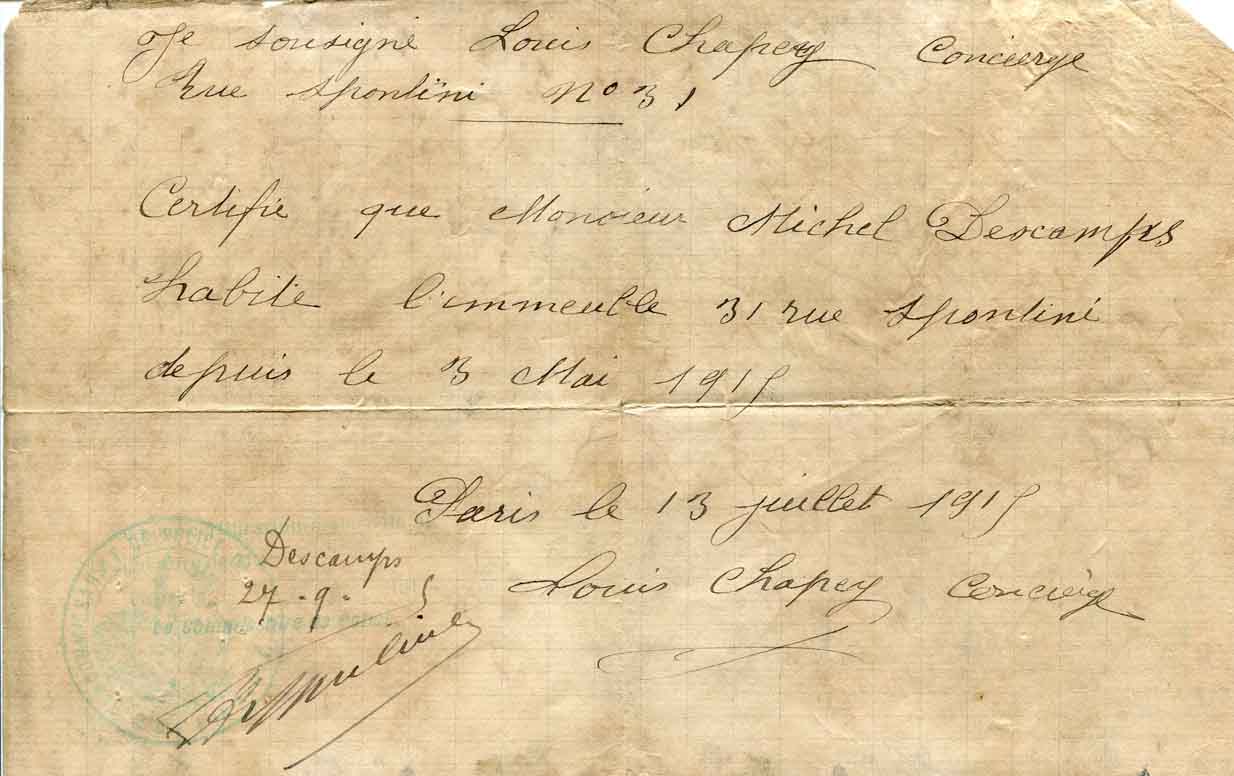 Je sousigné Louis Chapey Concierge
Rue Spontini No 31
Certifie que Monsieur Michel Descamps
habite l'immeuble 31 rue Spontini
depuis le 3 Mai 1915
Paris le 13 juillet 1915
Descamps
27.9. 5
Louis Chapey Concièrge